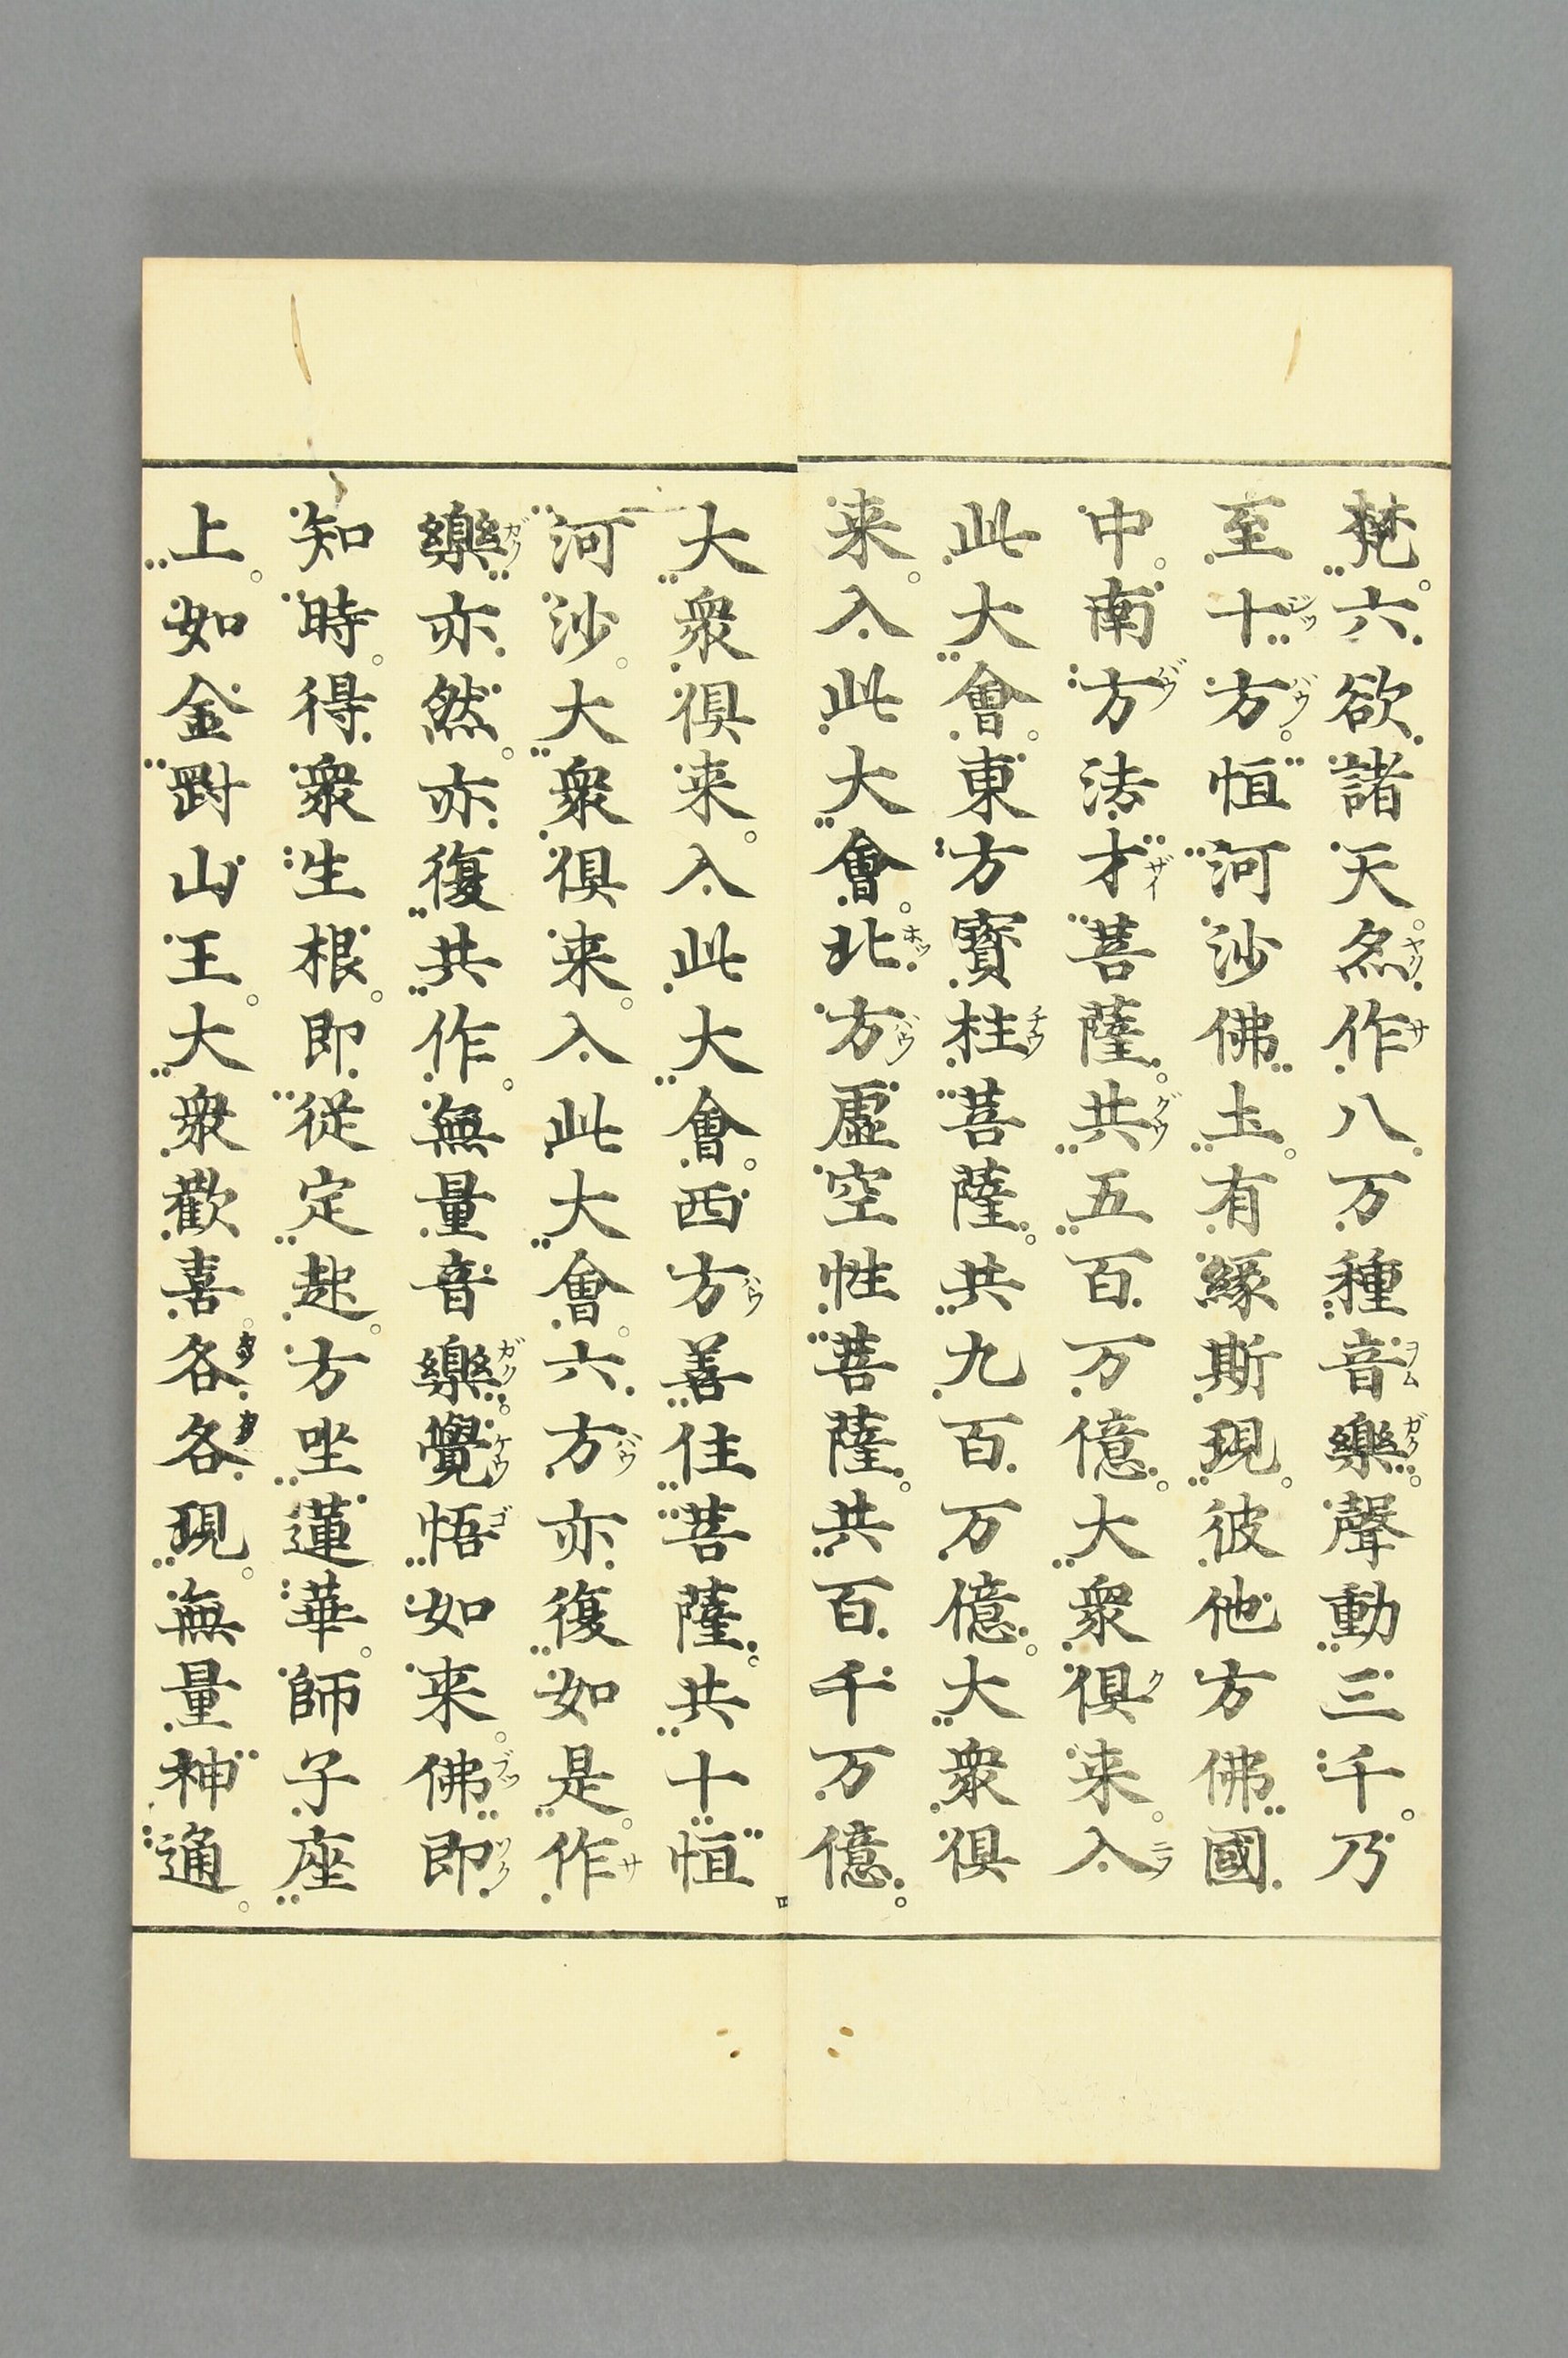 梵六欲諸天。尒作八万種音樂。聲動三千。乃
至十方。恒河沙佛土。有緣斯現。彼他方佛國
中。南方法才菩薩。共五百万億。大衆俱来。入
此大會。東方寳柱菩薩。共九百万億。大衆俱
来。入此大會。北方虛空性菩薩。共百千万億。
大衆俱来。入此大會。西方善住菩薩。共十恒
河沙。大衆俱来。入此大會。六方亦復如是。作
樂亦然。亦復共作。無量音樂。覺悟如来。佛即
知時。得衆生根。即從定起。方坐蓮華。師子座
上。如金剛山王。大衆歡喜。各各現。無量神通。